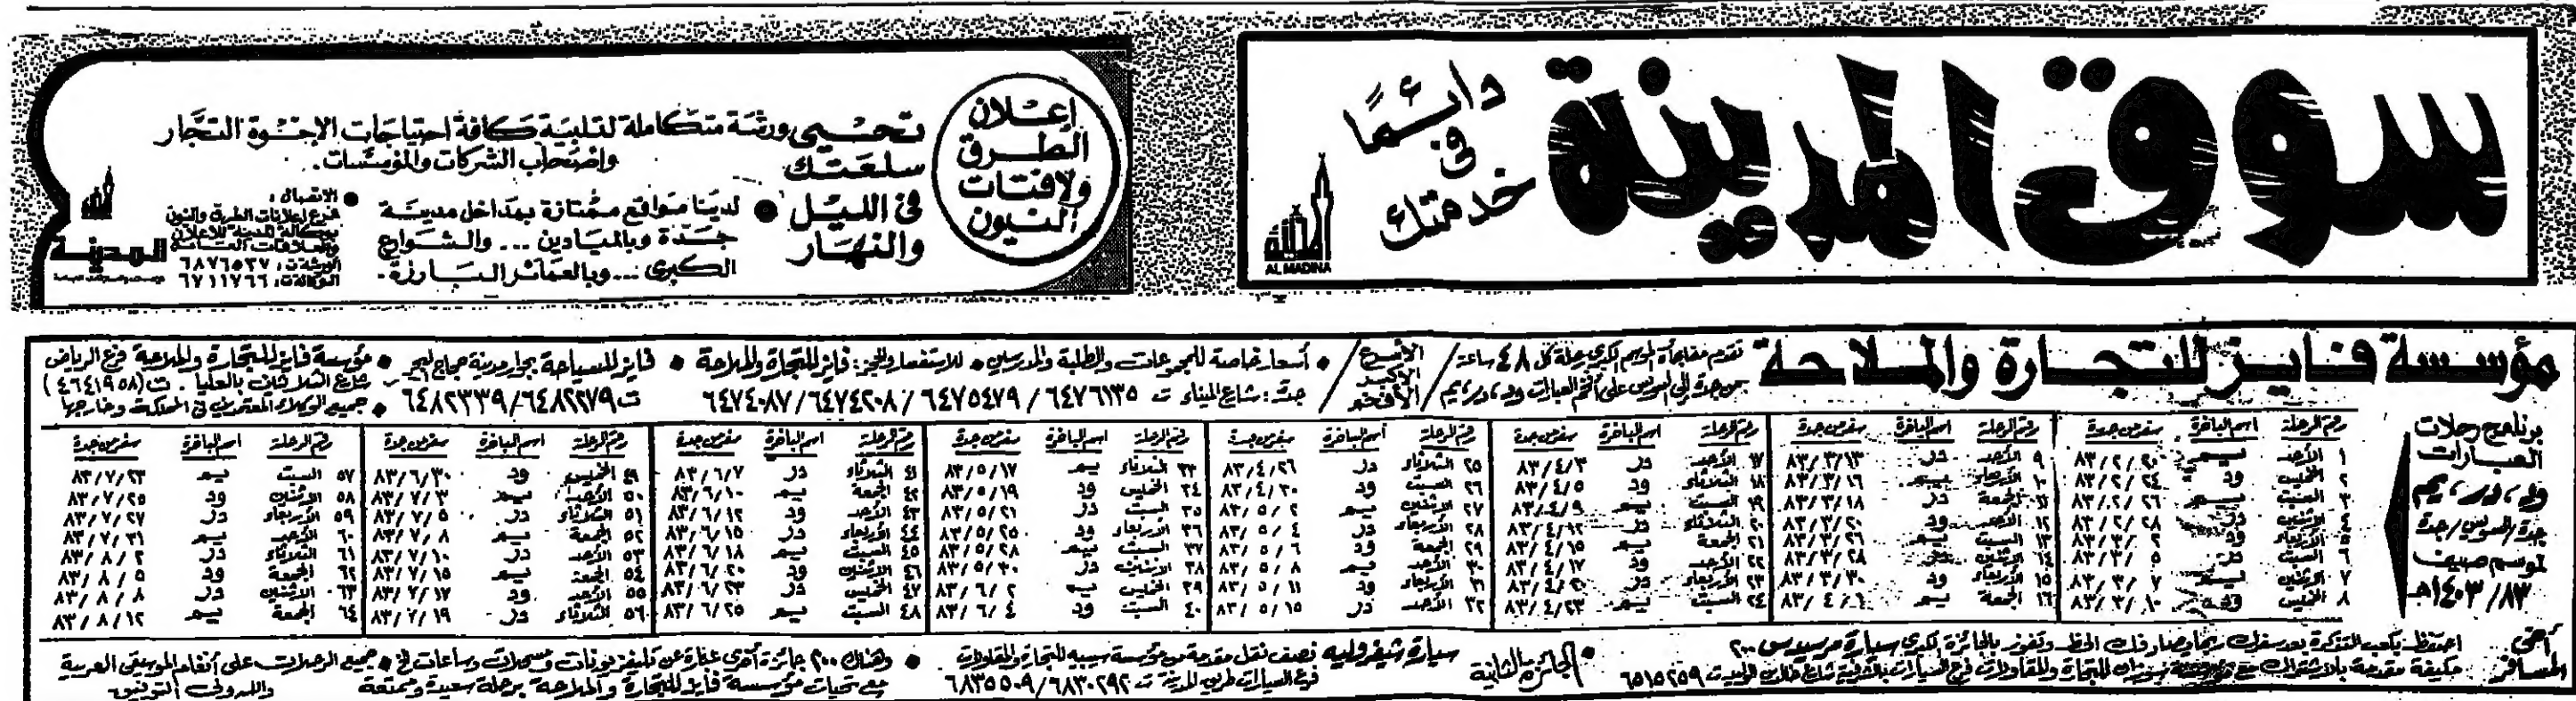 سوق المدينة
دائمًا
في
خدمتك
AL MADINA
إعلان
الطرق
ولافتات
النيون
تحسي
سلعتك
في الليل
والنهار
ورشة متكاملة لتلبية كافة احتياجات الإخوة التجار
واصحاب الشركات والمؤسسات.
● لدينا مواقع ممتازة بمداخل مدينة
جدة وبالميادين ... والشوارع
الكبرى ... وبالعمائر البارزة.
● الاتصال:
فرع إعلانات الطرق والنيون
بوكالة المدينة للإعلان
والعلاقات العامة
الورشة ت: ٦٨٧٦٥٣٧
الوكالة ت: ٦٧١١٧٦٦
المدينة
مؤسسة فايز للتجارة والملاحة
تقدم مفاجأة الموسم الكبرى رحلة كل ٤٨ ساعة
من جدة إلى السويس على أفخم العبارات ود، در، يم
الأسرع
الأكبر
الأفخم
● أسعار خاصة للمجموعات والطلبة والمدرسين ● للاستفسار والحجز: فايز للتجارة والملاحة ● فايز للسياحة بجوار مدينة حجاج البحر
جدة: شارع الميناء ت ٦٤٧٦١٣٥ / ٦٤٧٥٤٧٩ / ٦٤٧٤٢٠٨ / ٦٤٧٤٠٨٧ ت ٦٤٨٢٢٧٩/٦٤٨٢٣٣٩
● مؤسسة فايز للتجارة والملاحة فرع الرياض
شارع الثلاثين بالعليا. ت (٤٦٤١٩٥٨)
● جميع الوكلاء المعتمدين في المملكة وخارجها
برنامج رحلات
العبارات
ود، در، يم
جدة/السويس/جدة
لموسم صيف
٨٣/١٤٠٣هـ
رقم الرحلة اسم الباخرة سفر من جدة
١ الأحد يم ٨٣/٢/٢٠
٢ الخميس ود ٨٣/٢/٢٤
٣ السبت يم ٨٣/٢/٢٦
٤ الاثنين در ٨٣/٢/٢٨
٥ الأربعاء ود ٨٣/٣/٢
٦ السبت در ٨٣/٣/٥
٧ الاثنين يم ٨٣/٣/٧
٨ الخميس ود ٨٣/٣/١٠
رقم الرحلة اسم الباخرة سفر من جدة
٩ الأحد در ٨٣/٣/١٣
١٠ الأربعاء يم ٨٣/٣/١٦
١١ الجمعة در ٨٣/٣/١٨
١٢ الأحد ود ٨٣/٣/٢٠
١٣ السبت يم ٨٣/٣/٢٦
١٤ الاثنين در ٨٣/٣/٢٨
١٥ الأربعاء ود ٨٣/٣/٣٠
١٦ الجمعة يم ٨٣/٤/١
رقم الرحلة اسم الباخرة سفر من جدة
١٧ الأحد در ٨٣/٤/٣
١٨ الثلاثاء ود ٨٣/٤/٥
١٩ السبت يم ٨٣/٤/٩
٢٠ الثلاثاء در ٨٣/٤/١٢
٢١ الجمعة يم ٨٣/٤/١٥
٢٢ الأحد ود ٨٣/٤/١٧
٢٣ الأربعاء در ٨٣/٤/٢٠
٢٤ السبت يم ٨٣/٤/٢٣
رقم الرحلة اسم الباخرة سفر من جدة
٢٥ الثلاثاء در ٨٣/٤/٢٦
٢٦ السبت ود ٨٣/٤/٣٠
٢٧ الاثنين يم ٨٣/٥/٢
٢٨ الأربعاء در ٨٣/٥/٤
٢٩ الجمعة ود ٨٣/٥/٦
٣٠ الأحد يم ٨٣/٥/٨
٣١ الأربعاء ود ٨٣/٥/١١
٣٢ الأحد در ٨٣/٥/١٥
رقم الرحلة اسم الباخرة سفر من جدة
٣٣ الثلاثاء يم ٨٣/٥/١٧
٣٤ الخميس ود ٨٣/٥/١٩
٣٥ السبت در ٨٣/٥/٢١
٣٦ الأربعاء ود ٨٣/٥/٢٥
٣٧ السبت يم ٨٣/٥/٢٨
٣٨ الاثنين در ٨٣/٥/٣٠
٣٩ الخميس يم ٨٣/٦/٢
٤٠ السبت ود ٨٣/٦/٤
رقم الرحلة اسم الباخرة سفر من جدة
٤١ الثلاثاء در ٨٣/٦/٧
٤٢ الجمعة يم ٨٣/٦/١٠
٤٣ الأحد ود ٨٣/٦/١٢
٤٤ الأربعاء در ٨٣/٦/١٥
٤٥ السبت يم ٨٣/٦/١٨
٤٦ الاثنين ود ٨٣/٦/٢٠
٤٧ الخميس در ٨٣/٦/٢٣
٤٨ السبت يم ٨٣/٦/٢٥
رقم الرحلة اسم الباخرة سفر من جدة
٤٩ الخميس ود ٨٣/٦/٣٠
٥٠ الأحد يم ٨٣/٧/٣
٥١ الثلاثاء در ٨٣/٧/٥
٥٢ الجمعة يم ٨٣/٧/٨
٥٣ الأحد در ٨٣/٧/١٠
٥٤ الجمعة يم ٨٣/٧/١٥
٥٥ الأحد ود ٨٣/٧/١٧
٥٦ الثلاثاء در ٨٣/٧/١٩
رقم الرحلة اسم الباخرة سفر من جدة
٥٧ السبت يم ٨٣/٧/٢٣
٥٨ الاثنين ود ٨٣/٧/٢٥
٥٩ الأربعاء در ٨٣/٧/٢٧
٦٠ الأحد يم ٨٣/٧/٣١
٦١ الثلاثاء در ٨٣/٨/٢
٦٢ الجمعة ود ٨٣/٨/٥
٦٣ الاثنين در ٨٣/٨/٨
٦٤ الجمعة يم ٨٣/٨/١٢
أخي
المسافر
احتفظ بكعب التذكرة بعد سفرك ربما صادفك الحظ وتفوز بالجائزة الكبرى سيارة مرسيدس ٢٠٠
مكيفة مقدمة بالاشتراك مع للتجارة والمقاولات فرع السيارات شارع خالد بن الوليد ت ٦٥١٥٢٥٩
● الجائزة الثانية
سيارة شيفروليه نصف نقل مقدمة من مؤسسة سيبيه للتجارة والمقاولات
فرع السيارات طريق المدينة ت ٦٨٣٠٢٩٢/٦٨٣٥٥٠٩
● وهناك ٢٠٠ جائزة أخرى عبارة عن تليفزيونات ومسجلات وساعات الخ ● جميع الرحلات على أنغام الموسيقى العربية
مع تحيات مؤسسة فايز للتجارة والملاحة برحلة سعيدة وممتعة والله ولي التوفيق